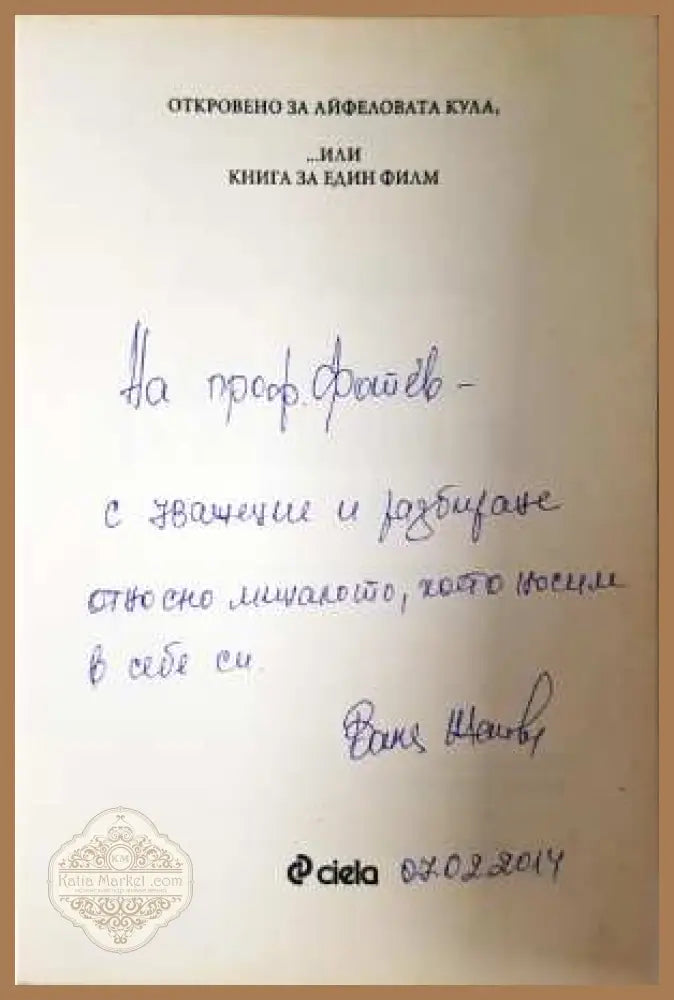 ОТКРОВЕНО ЗА АЙФЕЛОВАТА КУЛА,
...ИЛИ
КНИГА ЗА ЕДИН ФИЛМ
На проф. Фотев –
с уважение и разбиране
относно миналото, което носим
в себе си.
Ваня
ciela 07.02.2014
KM
Katia Market .com